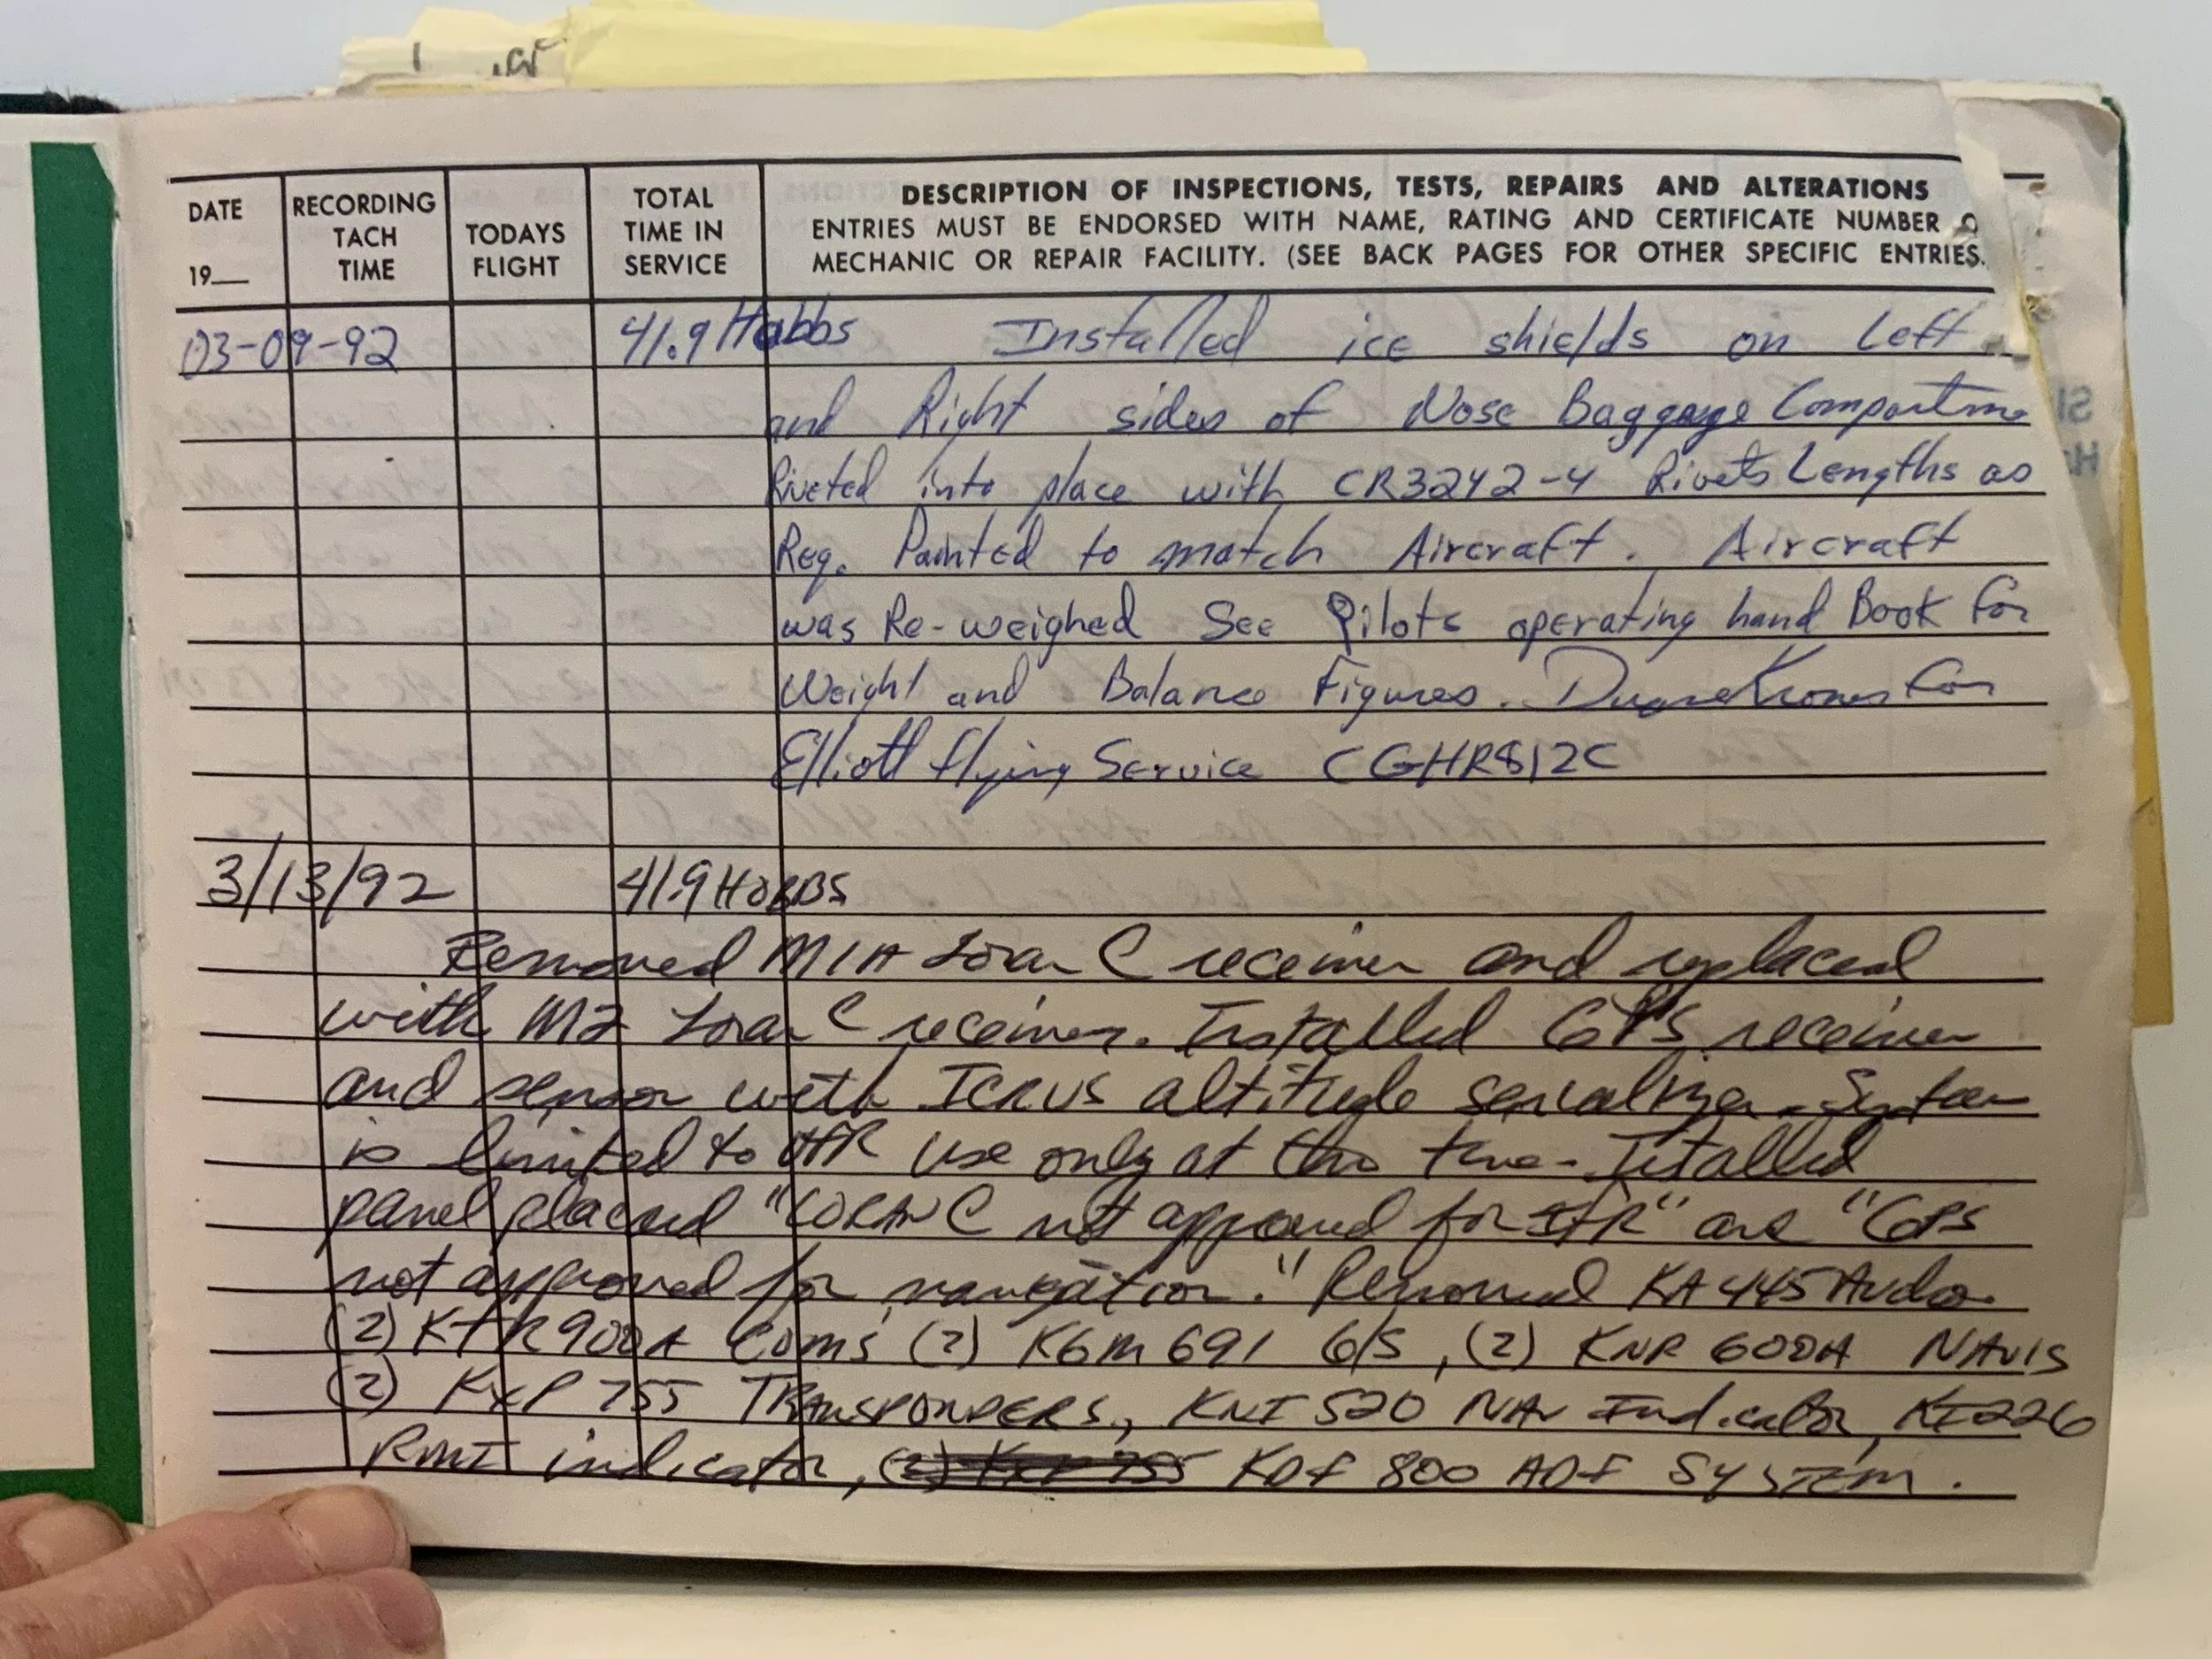 DATE
19__
RECORDING
TACH
TIME
TODAYS
FLIGHT
TOTAL
TIME IN
SERVICE
DESCRIPTION OF INSPECTIONS, TESTS, REPAIRS AND ALTERATIONS
ENTRIES MUST BE ENDORSED WITH NAME, RATING AND CERTIFICATE NUMBER O
MECHANIC OR REPAIR FACILITY. (SEE BACK PAGES FOR OTHER SPECIFIC ENTRIES.
03-09-92 41.9 Hobbs Installed ice shields on Left
and Right sides of Nose Baggage Compartme
Riveted into place with CR3242-4 Rivets Lengths as
Req. Painted to match Aircraft. Aircraft
was Re-weighed See Pilots operating hand Book for
Weight and Balance Figures. for
Elliott flying Service CGHR812C
3/13/92 41.9 HOBBS
Removed M1A Loran C receiver and replaced
with M2 Loran C receiver. Installed GPS receiver
and sensor with ICRUS altitude serializer. System
is limited to VFR use only at this time. Istalled
panel placard "LORAN C not approved for IFR" and "GPS
not approved for navigation." Removed KA 445 Audio
(2) KTR 900A Coms (2) KGM 691 G/S, (2) KNR 600A NAVIS
(2) KXP 755 TRANSPONDERS, KNI 520 NAV Indicator, KI226
RMI indicator, KDF 800 ADF SYSTEM.